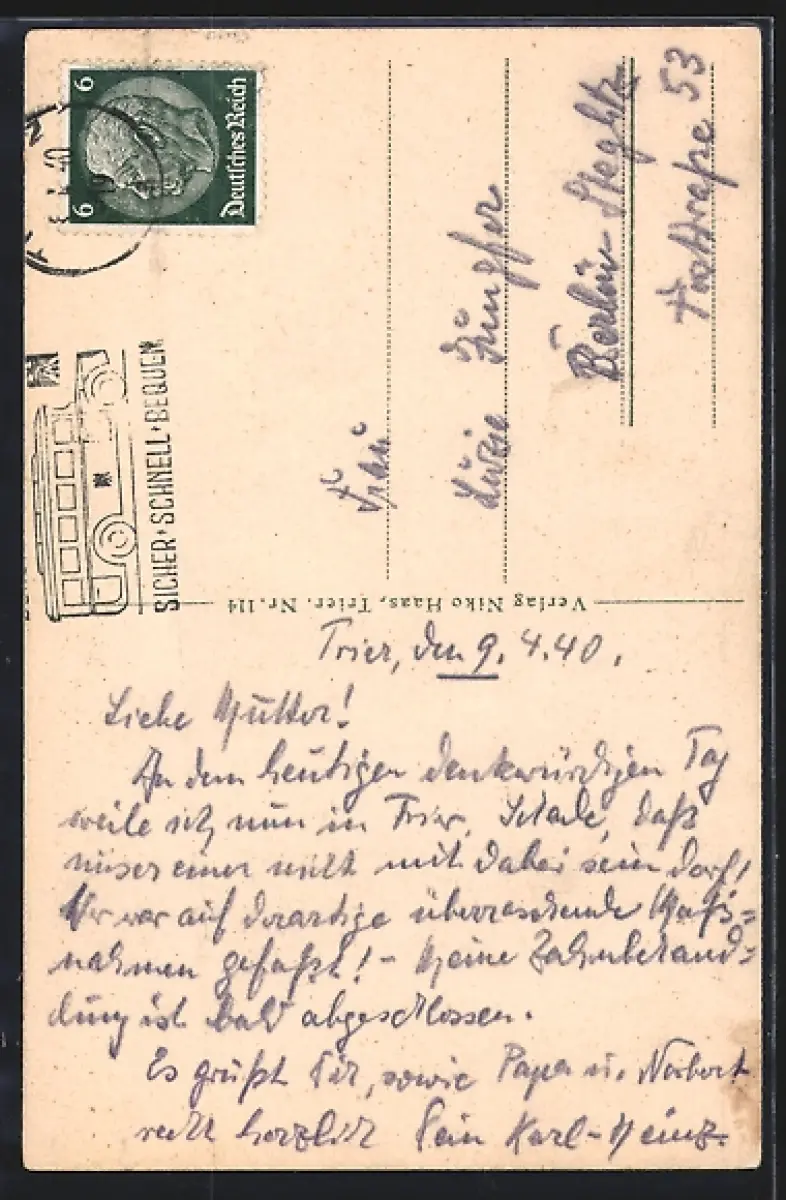 6
6
Deutsches Reich
4.40
SICHER · SCHNELL · BEQUEM
Frau
Luzie Jungfer
Berlin-Steglitz
Forststraße 53
Verlag Niko Haas, Trier. Nr. 114
Trier, den 9. 4. 40.
Liebe Mutter!
An dem heutigen denkwürdigen Tag
weile ich nun in Trier. Schade, daß
unser einer nicht mit dabei sein darf!
Wer war auf derartige überraschende Maß=
nahmen gefaßt! – Meine Zahnbehand=
lung ist bald abgeschlossen.
Es grüßt Dir, sowie Papa u. Norbert
recht herzlich Dein Karl-Heinz.